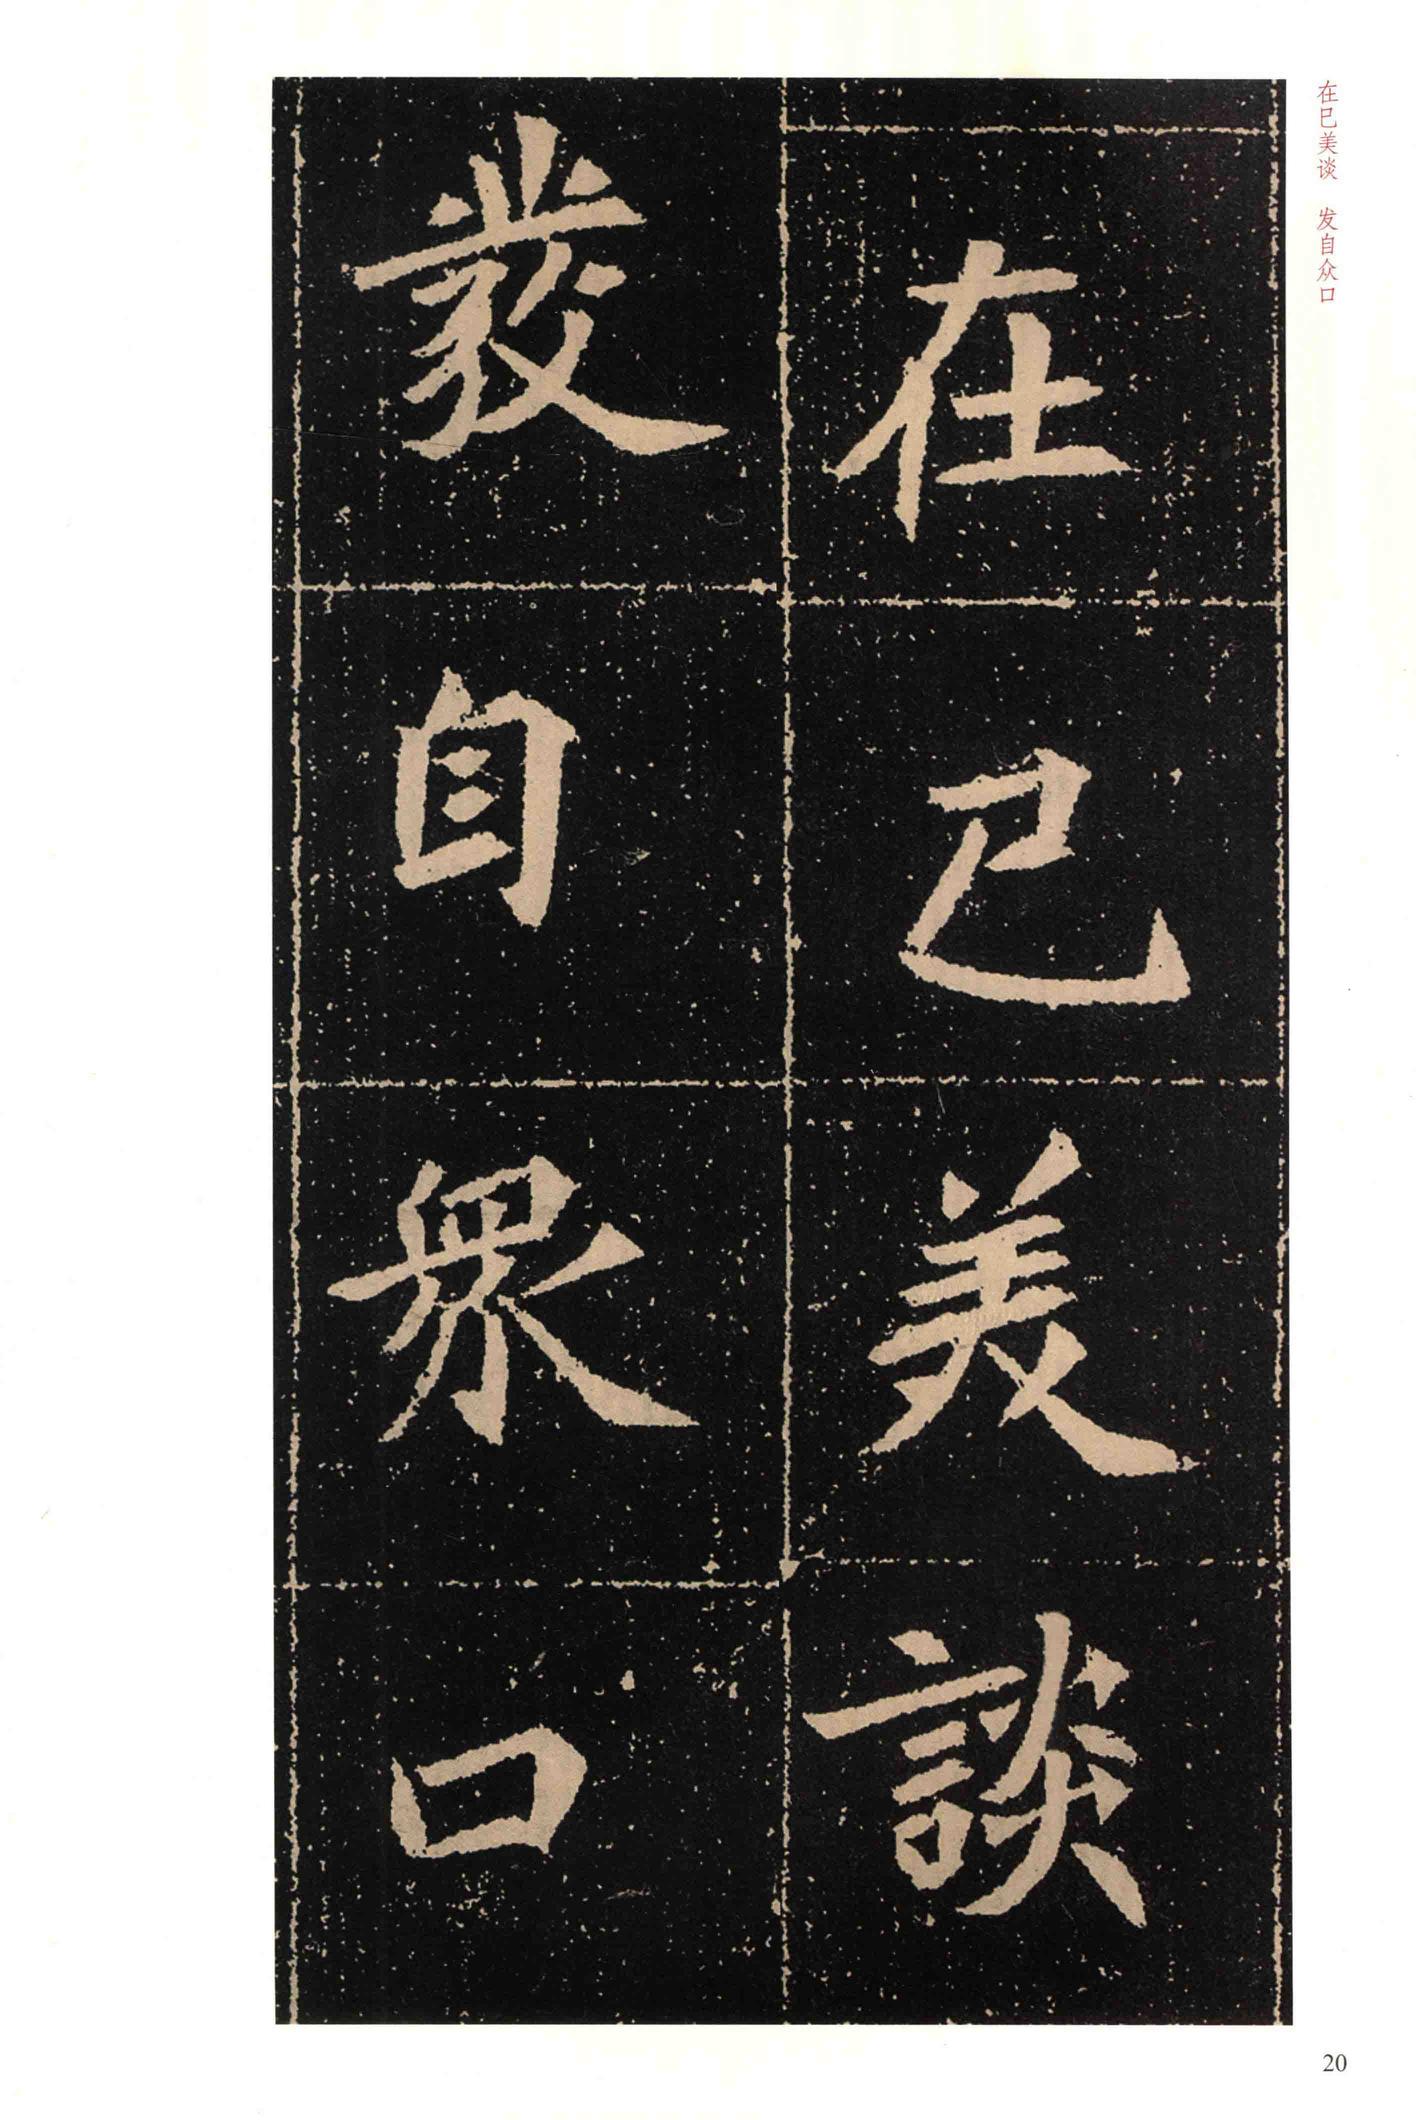 在己美谈　发自众口
在己美談
發自眾口
20